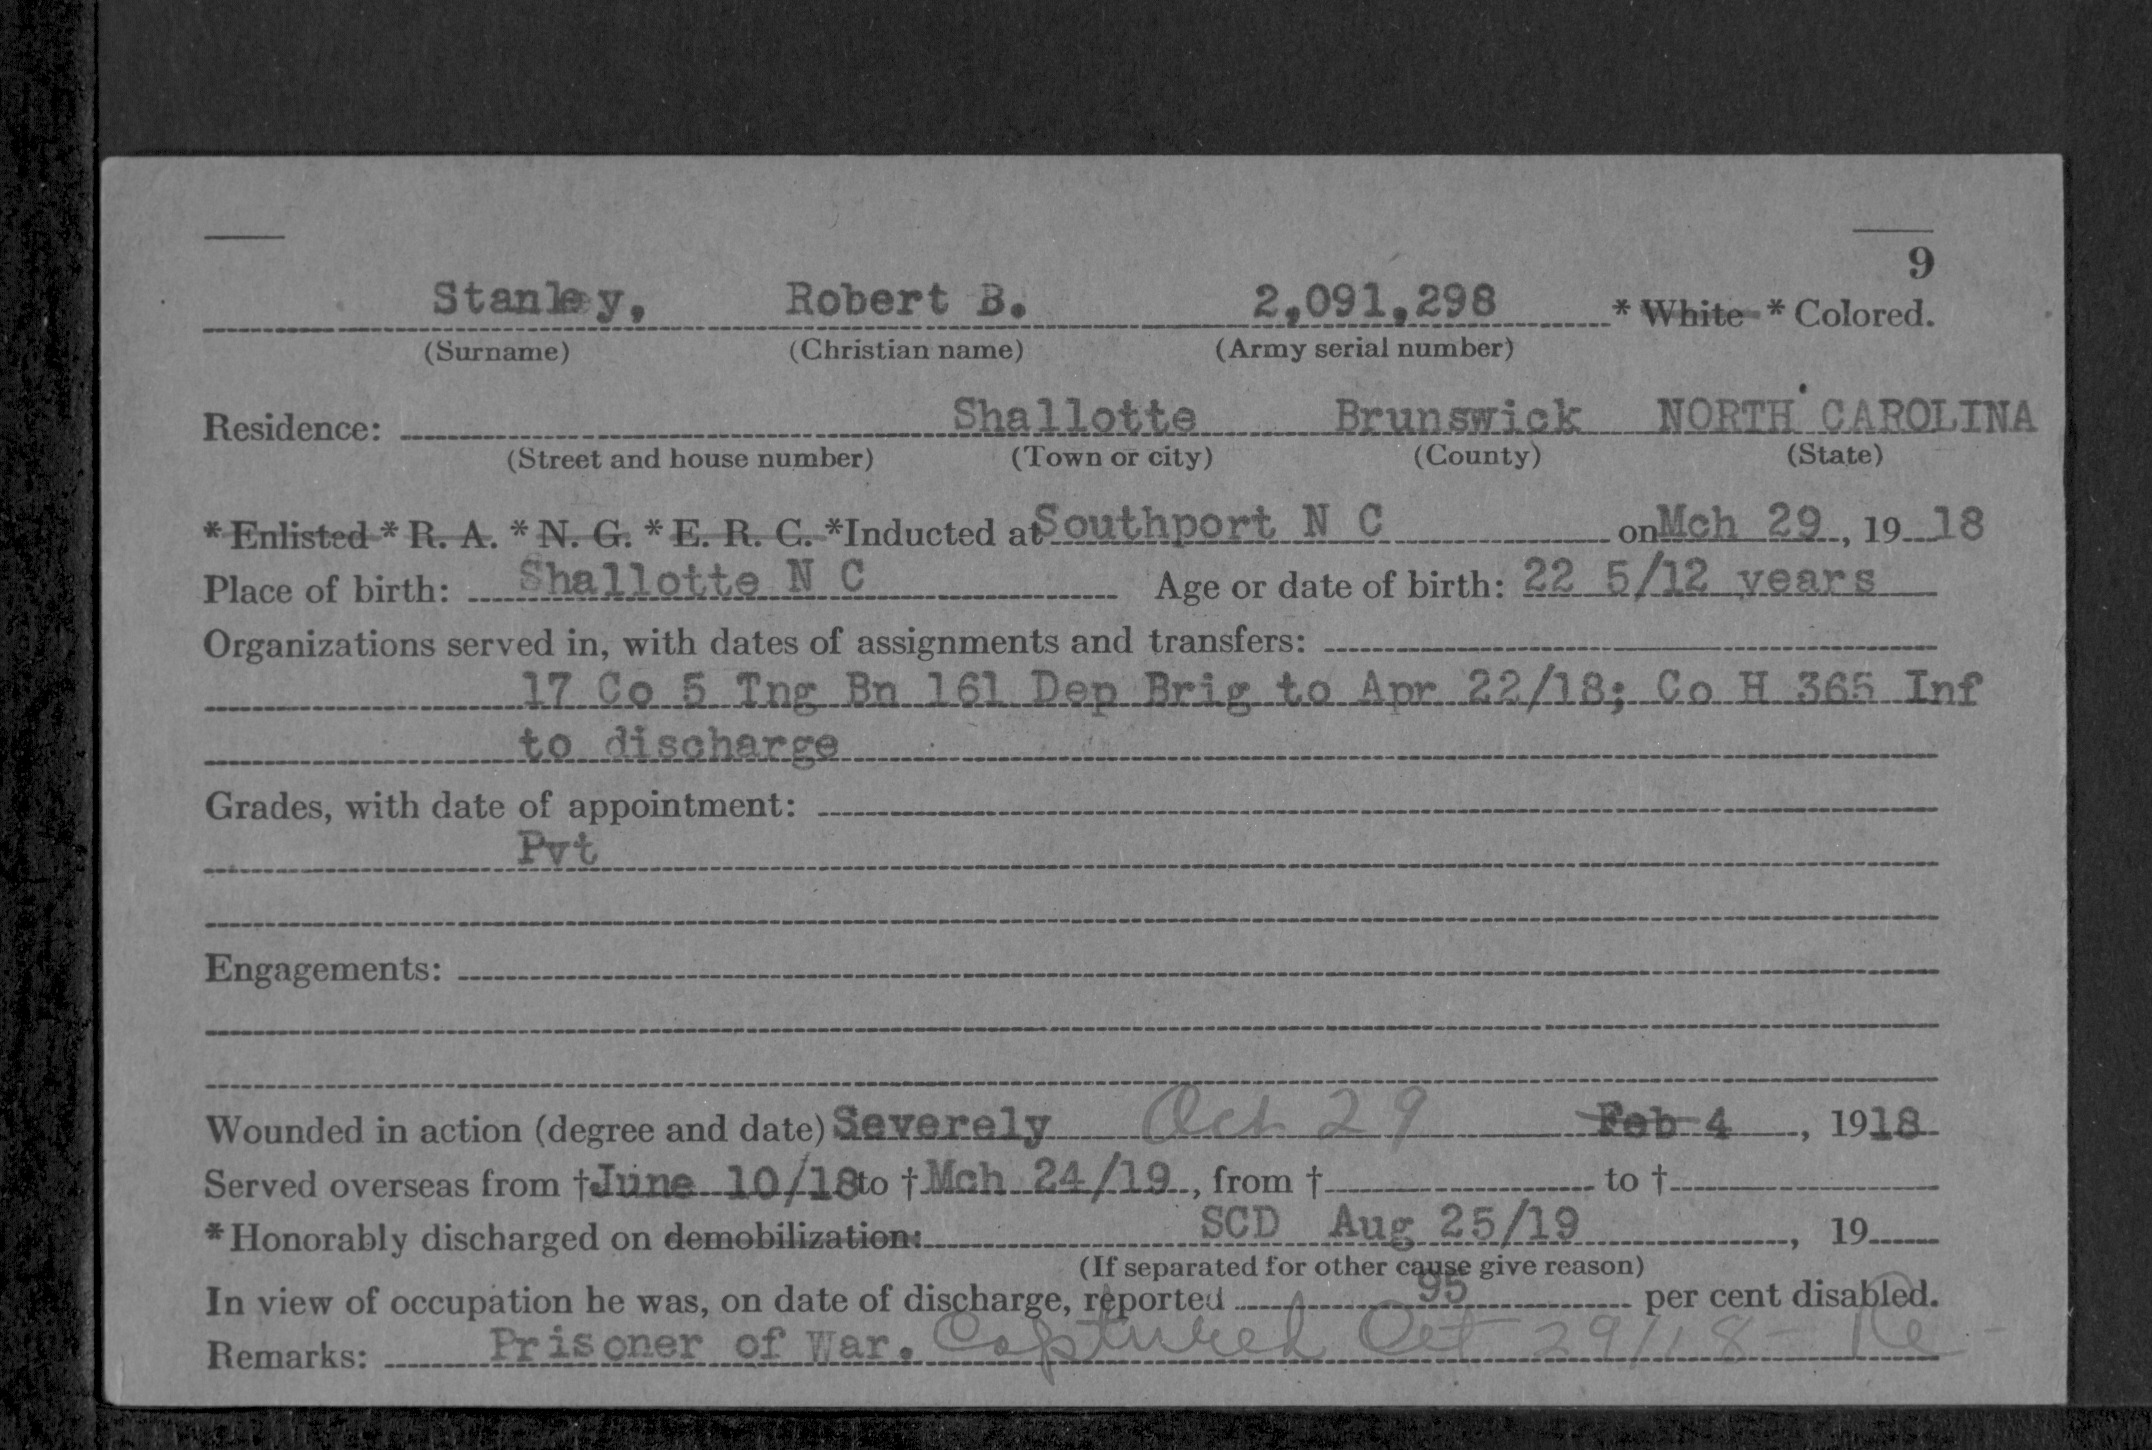 9
Stanley, Robert B. 2,091,298 * White * Colored.
(Surname) (Christian name) (Army serial number)
Residence: Shallotte Brunswick NORTH CAROLINA
(Street and house number) (Town or city) (County) (State)
* Enlisted * R. A. * N. G. * E. R. C. *Inducted at Southport N C on Mch 29, 19 18
Place of birth: Shallotte N C Age or date of birth: 22 5/12 years
Organizations served in, with dates of assignments and transfers:
17 Co 5 Tng Bn 161 Dep Brig to Apr 22/18; Co H 365 Inf
to discharge
Grades, with date of appointment:
Pvt
Engagements:
Wounded in action (degree and date) Severely Oct 29 Feb 4, 1918
Served overseas from † June 10/18 to † Mch 24/19, from † to †
* Honorably discharged on demobilization: SCD Aug 25/19, 19
(If separated for other cause give reason)
In view of occupation he was, on date of discharge, reported 95 per cent disabled.
Remarks: Prisoner of War. Captured Oct 29/18 -